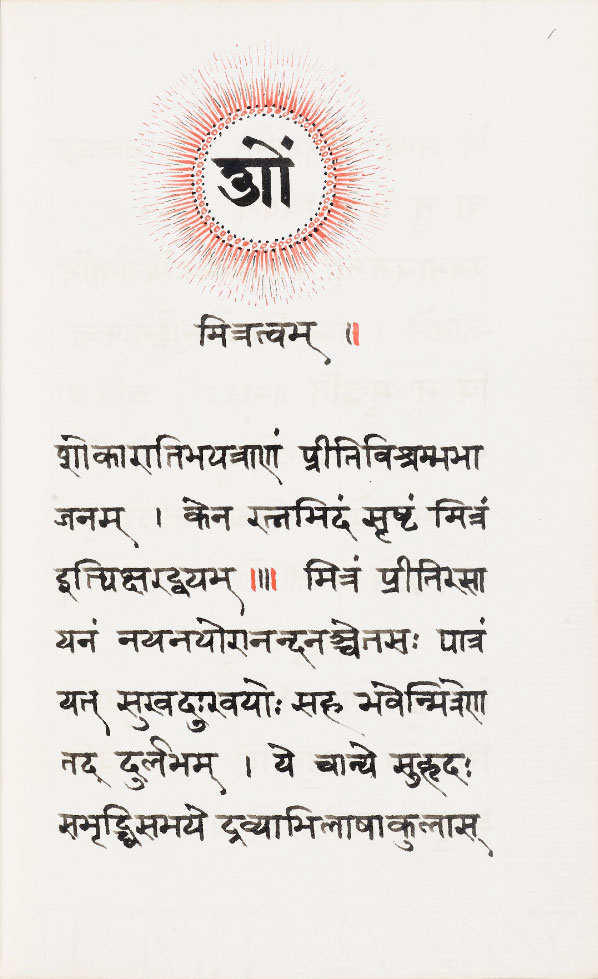 ओं
मित्रत्वम् ॥
शोकारातिभयत्राणं प्रीतिविश्रम्भभा
जनम् । केन रत्नमिदं सृष्टं मित्रं
इत्यिक्षरद्वयम् ॥॥ मित्रं प्रीतिरसा
यनं नयनयोरानन्दनञ्चेतसः पात्रं
यत् सुखदुःखयोः सह भवेन्मित्रेण
तद् दुर्लभम् । ये चान्ये सुहृदः
समृद्धिसमये द्रव्याभिलाषाकुलास्